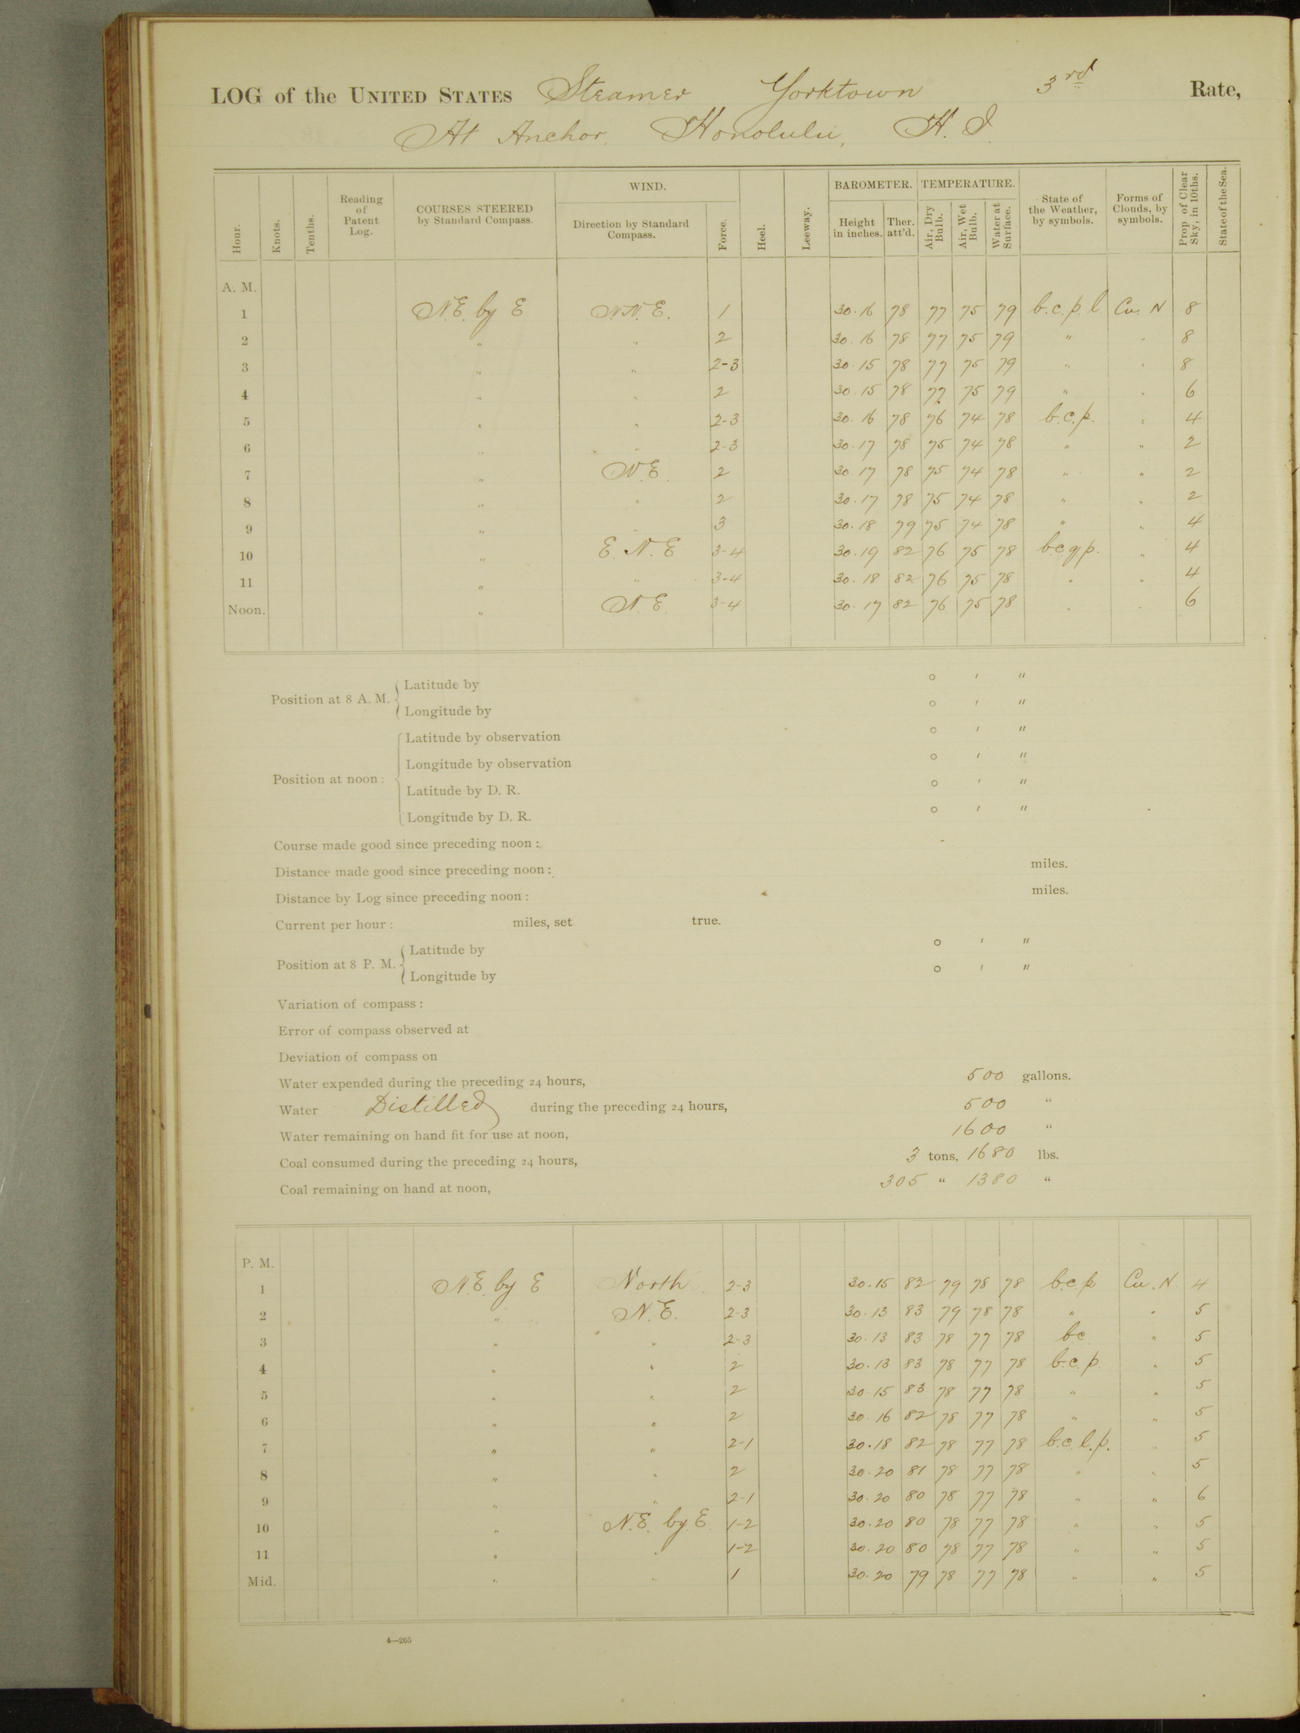 LOG of the UNITED STATES Steamer Yorktown 3rd Rate,
At Anchor, Honolulu, H. I.
Hour. Knots. Tenths. Reading of Patent Log. COURSES STEERED by Standard Compass. WIND. Direction by Standard Compass. Force. Heel. Leeway. BAROMETER. Height in inches. Ther. att'd. TEMPERATURE. Air, Dry Bulb. Air, Wet Bulb. Water at Surface. State of the Weather, by symbols. Forms of Clouds, by symbols. Prop. of Clear Sky, in 10ths. State of the Sea.
A. M.
1 N.E. by E N.N.E. 1 30.16 78 77 75 79 b.c.p.l. Cu. N 8
2 " " 2 30.16 78 77 75 79 " " 8
3 " " 2-3 30.15 78 77 75 79 " " 8
4 " " 2 30.15 78 77 75 79 " " 6
5 " " 2-3 30.16 78 76 74 78 b.c.p. " 4
6 " " 2-3 30.17 78 75 74 78 " " 2
7 " N.E. 2 30.17 78 75 74 78 " " 2
8 " " 2 30.17 78 75 74 78 " " 2
9 " " 3 30.18 79 75 74 78 " " 4
10 " E.N.E 3-4 30.19 82 76 75 78 b.c.q.p. " 4
11 " " 3-4 30.18 82 76 75 78 " " 4
Noon. " N.E. 3-4 30.17 82 76 75 78 " " 6
Position at 8 A. M. Latitude by ° ' "
Longitude by ° ' "
Position at noon: Latitude by observation ° ' "
Longitude by observation ° ' "
Latitude by D. R. ° ' "
Longitude by D. R. ° ' "
Course made good since preceding noon:
Distance made good since preceding noon: miles.
Distance by Log since preceding noon: miles.
Current per hour: miles, set true.
Position at 8 P. M. Latitude by ° ' "
Longitude by ° ' "
Variation of compass:
Error of compass observed at
Deviation of compass on
Water expended during the preceding 24 hours, 500 gallons.
Water Distilled during the preceding 24 hours, 500 "
Water remaining on hand fit for use at noon, 1600 "
Coal consumed during the preceding 24 hours, 3 tons, 1680 lbs.
Coal remaining on hand at noon, 305 " 1380 "
P. M.
1 N.E. by E North 2-3 30.15 82 79 78 78 b.c.p Cu. N 4
2 " N.E. 2-3 30.13 83 79 78 78 " " 5
3 " " 2-3 30.13 83 78 77 78 b.c. " 5
4 " " 2 30.13 83 78 77 78 b.c.p. " 5
5 " " 2 30.15 83 78 77 78 " " 5
6 " " 2 30.16 82 78 77 78 " " 5
7 " " 2-1 30.18 82 78 77 78 b.c.l.p. " 5
8 " " 2 30.20 81 78 77 78 " " 5
9 " " 2-1 30.20 80 78 77 78 " " 6
10 " N.E. by E 1-2 30.20 80 78 77 78 " " 5
11 " " 1-2 30.20 80 78 77 78 " " 5
Mid. " " 1 30.20 79 78 77 78 " " 5
4—265